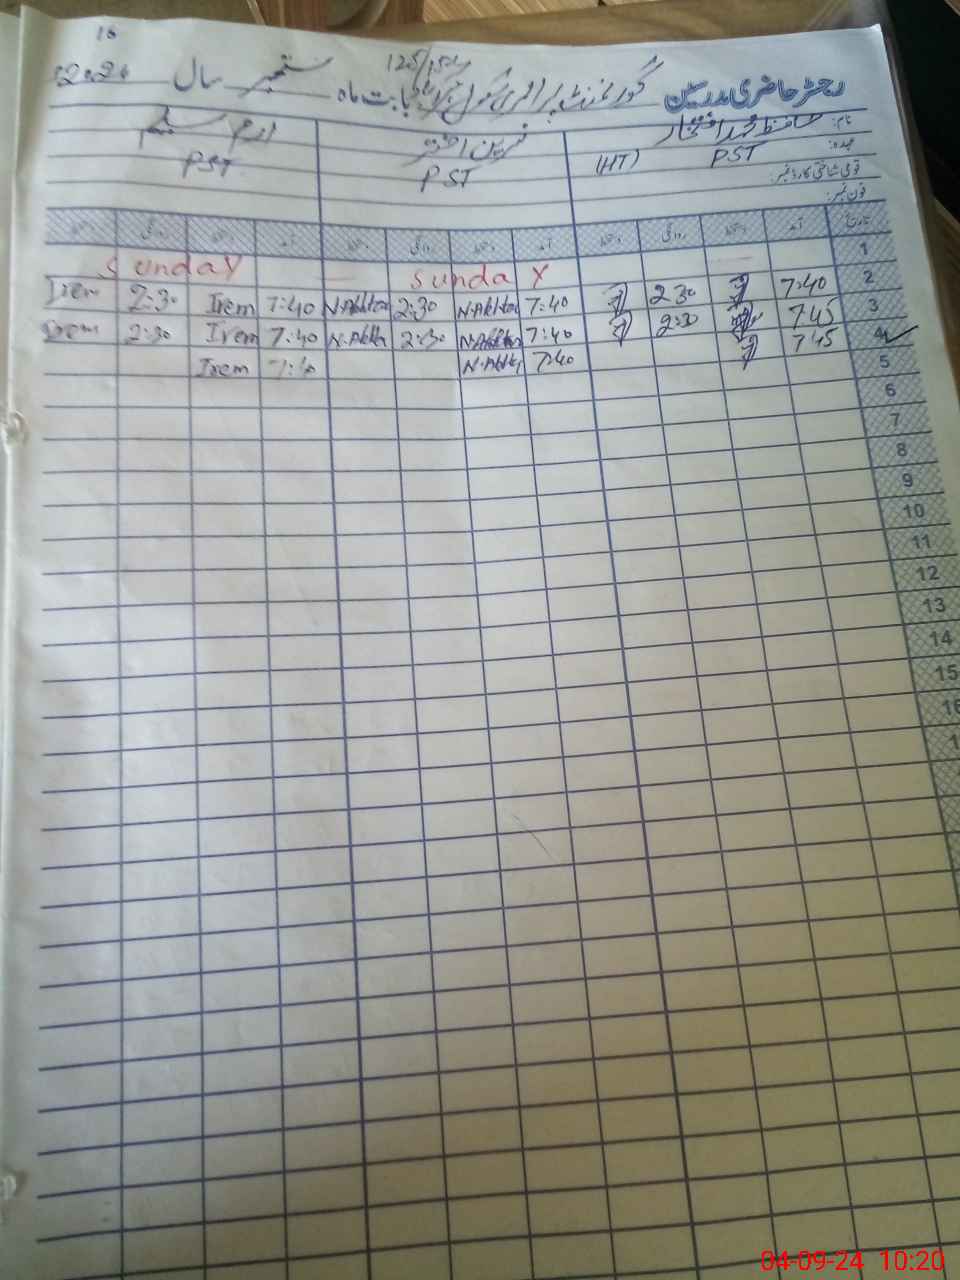 16
رجسٹر حاضری مدرسین گورنمنٹ پرائمری سکول 125/15L بابت ماہ ستمبر سال 2024
نام: حافظ محمد افتخار نسرین اختر ارم سلیم
عہدہ: PST (HT) PST PST
قومی شناختی کارڈ نمبر:
فون نمبر:
تاریخ آمد دستخط روانگی دستخط آمد دستخط روانگی دستخط آمد دستخط روانگی دستخط
1 Sunday Sunday
2 7:40 2:30 7:40 N.Akhtar 2:30 N.Akhtar 7:40 Irem 2:30 Irem
3 7:45 2:30 7:40 N.Akhtar 2:30 N.Akhtar 7:40 Irem 2:30 Irem
4 7:45 7:40 N.Akhtar 7:40 Irem
5
6
7
8
9
10
11
12
13
14
15
16
04-09-24 10:20